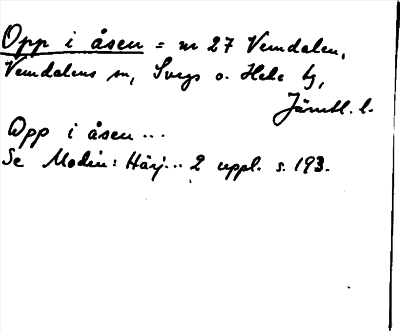 Opp i åsen = nr 27 Vemdalen,
Vemdalens sn, Svegs o. Hede tg,
Jämtl. l.
Opp i åsen...
Se Modin: Härj... 2 uppl. s. 193.